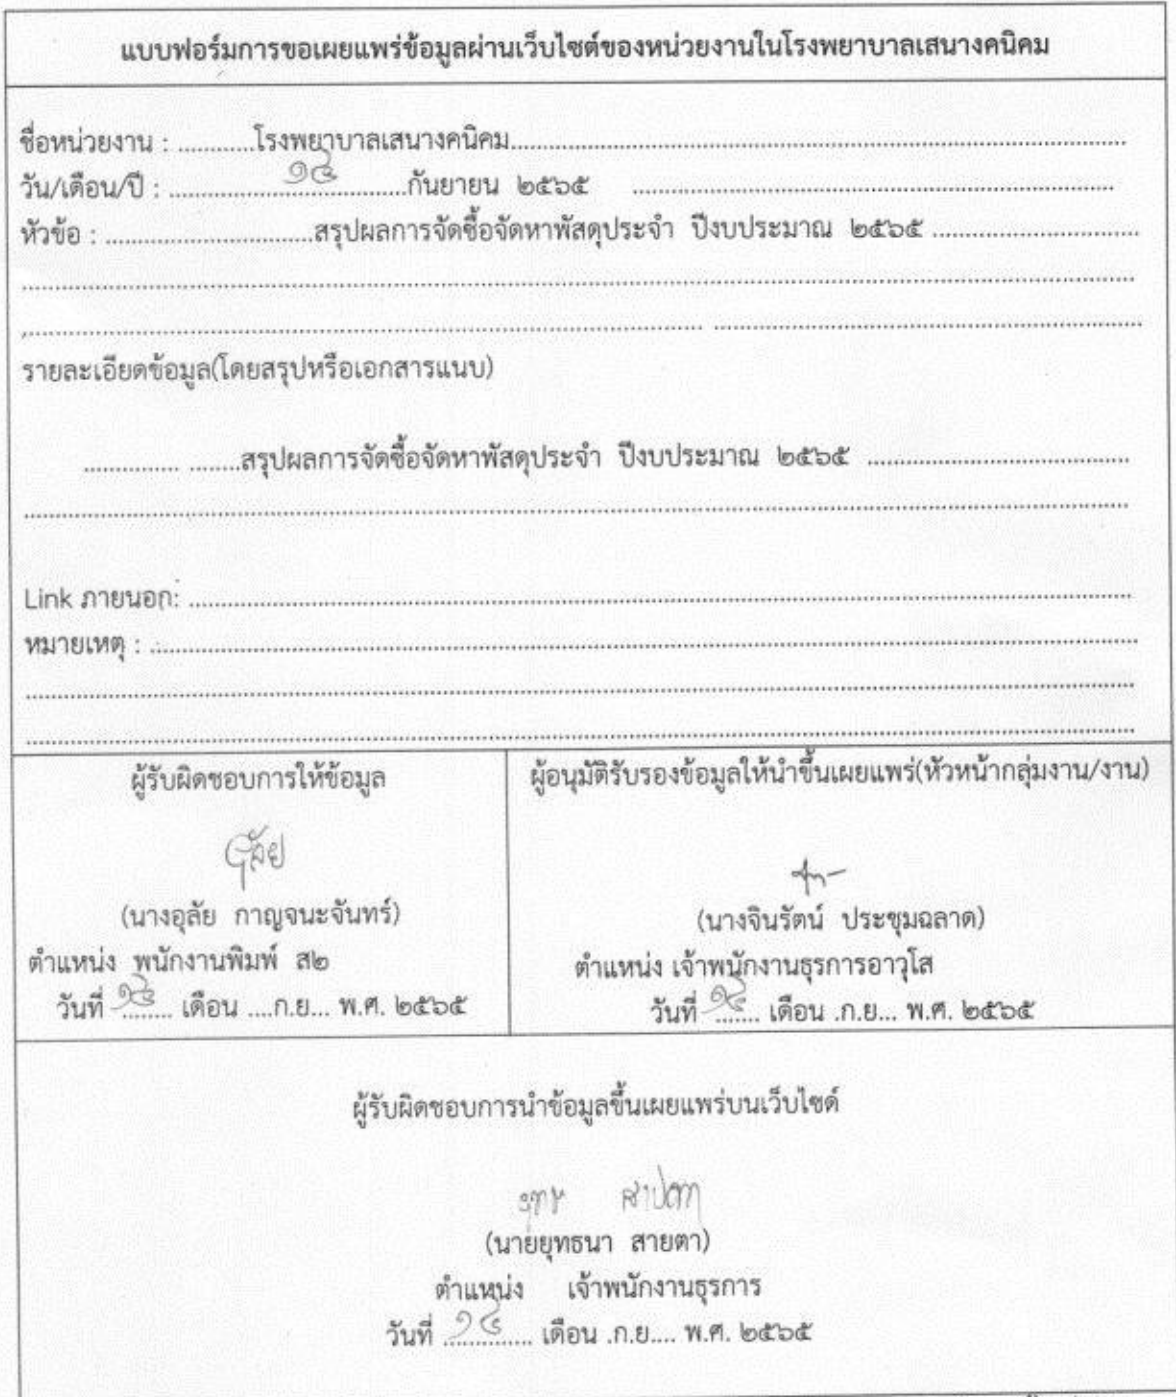 แบบฟอร์มการขอเผยแพร่ข้อมูลผ่านเว็บไซต์ของหน่วยงานในโรงพยาบาลเสนางคนิคม
ชื่อหน่วยงาน : ............โรงพยาบาลเสนางคนิคม............
วัน/เดือน/ปี : ............๑๔............กันยายน ๒๕๖๕ ............
หัวข้อ : ............สรุปผลการจัดซื้อจัดหาพัสดุประจำ ปีงบประมาณ ๒๕๖๕ ............
รายละเอียดข้อมูล(โดยสรุปหรือเอกสารแนบ)
............ ........สรุปผลการจัดซื้อจัดหาพัสดุประจำ ปีงบประมาณ ๒๕๖๕ ............
Link ภายนอก: ............
หมายเหตุ : ............
ผู้รับผิดชอบการให้ข้อมูล
อุลัย
(นางอุลัย กาญจนะจันทร์)
ตำแหน่ง พนักงานพิมพ์ ส๒
วันที่ ๑๔ เดือน ....ก.ย... พ.ศ. ๒๕๖๕
ผู้อนุมัติรับรองข้อมูลให้นำขึ้นเผยแพร่(หัวหน้ากลุ่มงาน/งาน)
(นางจินรัตน์ ประชุมฉลาด)
ตำแหน่ง เจ้าพนักงานธุรการอาวุโส
วันที่ ๑๔ เดือน .ก.ย... พ.ศ. ๒๕๖๕
ผู้รับผิดชอบการนำข้อมูลขึ้นเผยแพร่บนเว็บไซด์
สายตา
(นายยุทธนา สายตา)
ตำแหน่ง เจ้าพนักงานธุรการ
วันที่ ๑๔ เดือน .ก.ย.... พ.ศ. ๒๕๖๕